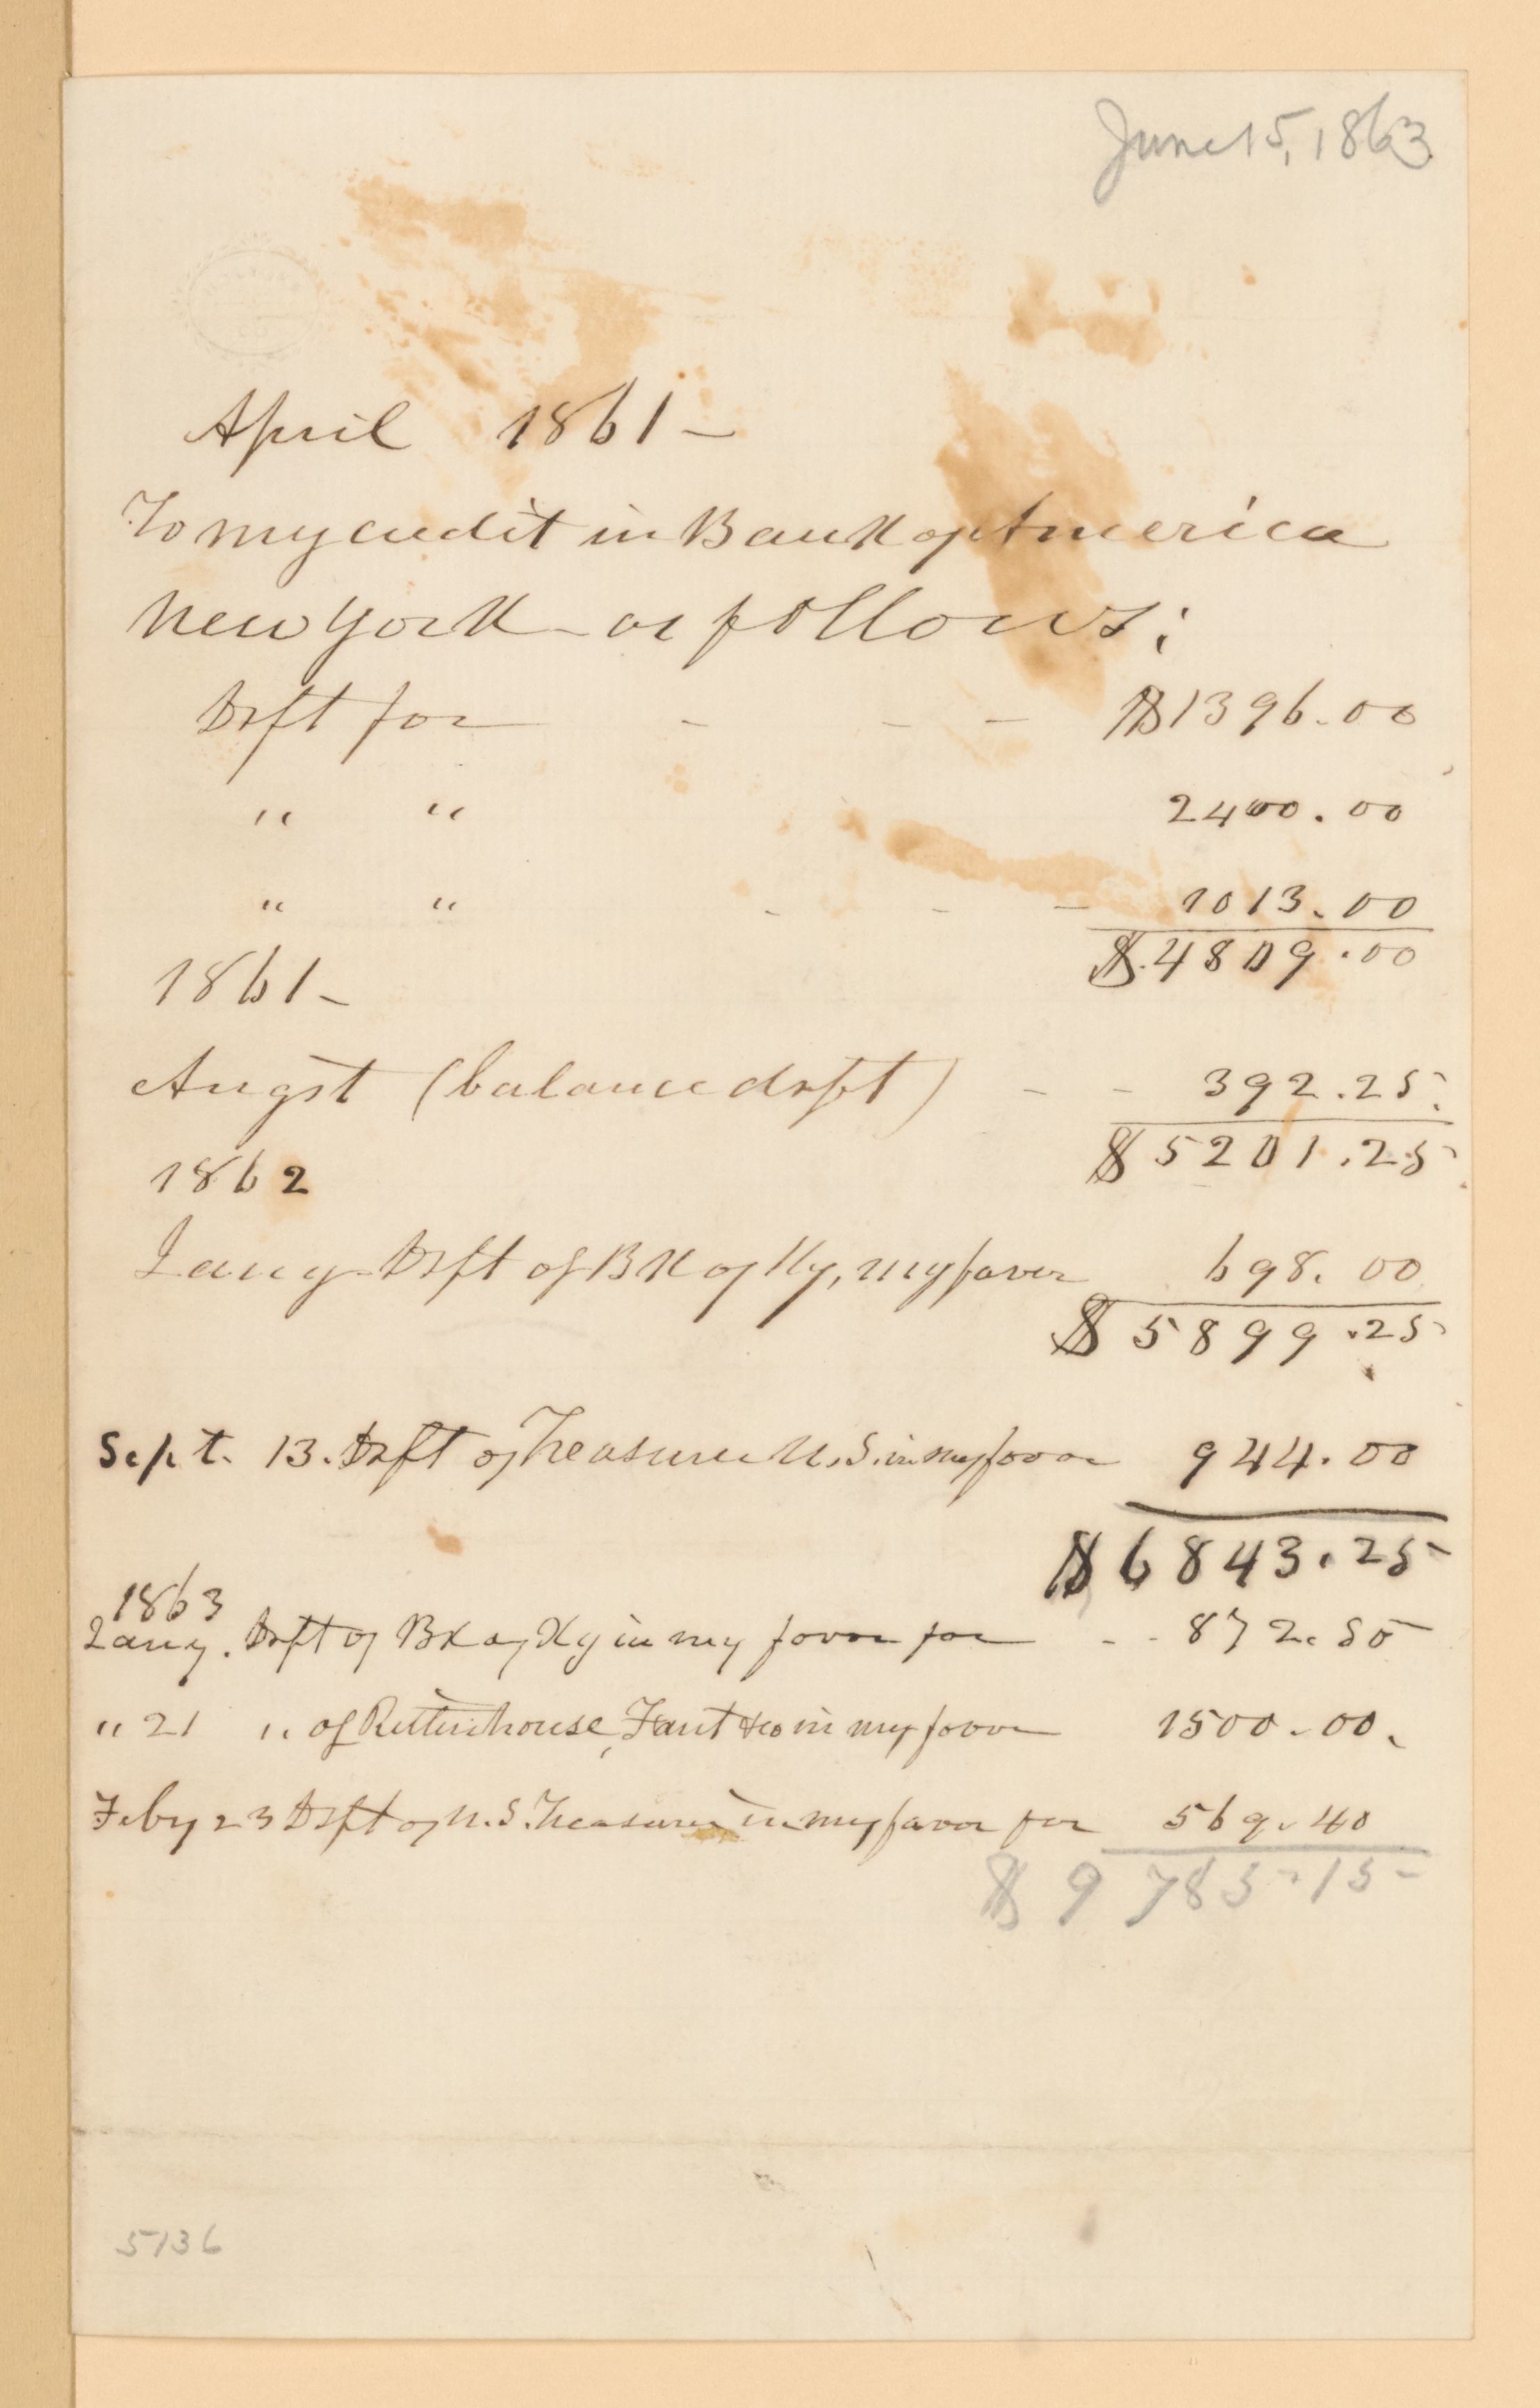 June 15, 1863
April 1861 –
To my credit in Bank of America
New York – as follows:
Drft for – – – $1396.00
" " 2400.00
" " – – – 1013.00
$.4809.00
1861 –
Augst (balance drft) – – 392.25.
$5201.25
1862
Jany – Drft of BK of Ky, my favor 698.00
$5899.25
Sept. 13. Drft of Treasurer U.S. in my favor 944.00
$6843.25
1863
Jany. Drft of BK of Ky in my favor for - - 872.50
" 21 " of Rittenhouse, Fant &co in my favor 1500.00.
Feby 23 Drft of U.S. Treasurer in my favor for 569.40
$9785.15
5136